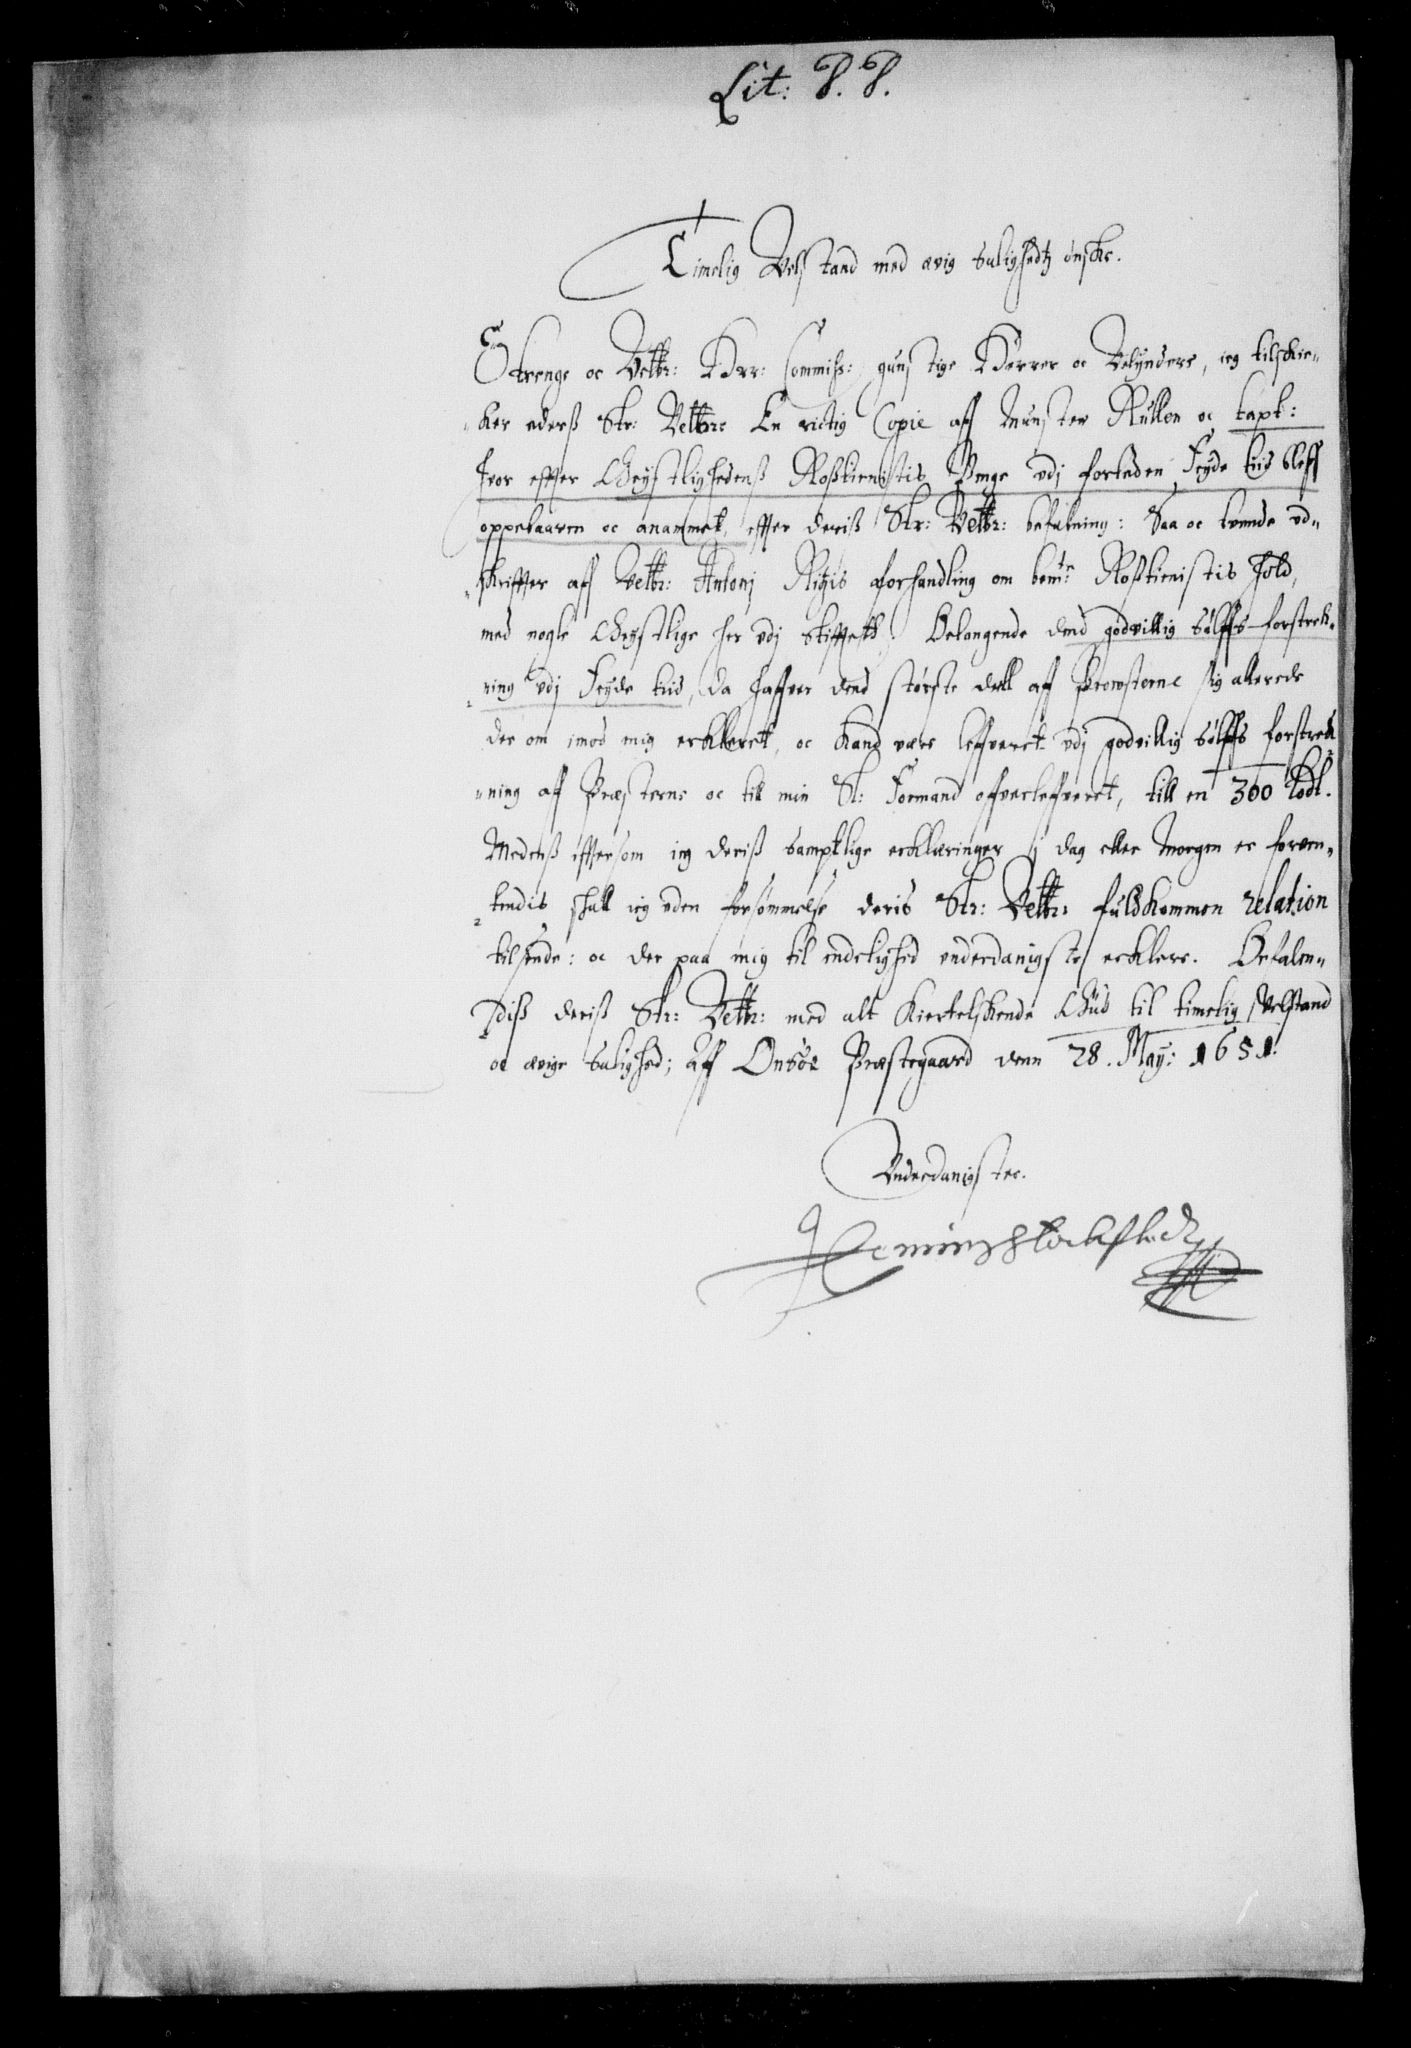 Lit: P. P.
Timelig Velstand med ævig Saligheds ønske.
Strenge oc Velb: Herr: Commiss: gunstige Herrer oc Velyndere, ieg tilskic¬
ker eders Str: Velb: En rictig Copie aff Munster Rullen oc taxt:
huor effter Geystlighedens Rosstienistis Penge vdj forleden Feyde tiid bleff
oppebaaren oc anammet, effter deriß Str: Velb: befalning: Saa oc tvende vd¬
skriffter aff Velb: Antonj forhandling om bem:te Rosstienistis hold,
med nogle Geystlige her vdj Stifftett. Belangende dend godvillig Sölffs forstrek¬
ning vdj Feyde tiid, da haffver dend störste deell aff Prowsterne sig allerede
der om imod mig ercklæret, oc kand være leffveret vdj godvillig sölffs forstreck¬
ning aff Præsterne oc till min Sl: Formand offverleffveret, till en 360 Lodt.
Medenß effttersom ieg deriß samptlige ercklæringer j dag eller Morgen er forven¬
tendis, skall ieg uden forsömmelse deris Str: Velb: fuldkommen relation
tilsende: oc der paa mig til endelighed vnderdanigste ercklere. Befalen¬
diß deriß Str: Velb: med alt kierelskende Gud til timelig Velstand
oc ævige Salighed; Aff Onsöe Præstegaard denn 28. May: 1651.
Vnderdanigster.
Henning Stockfled